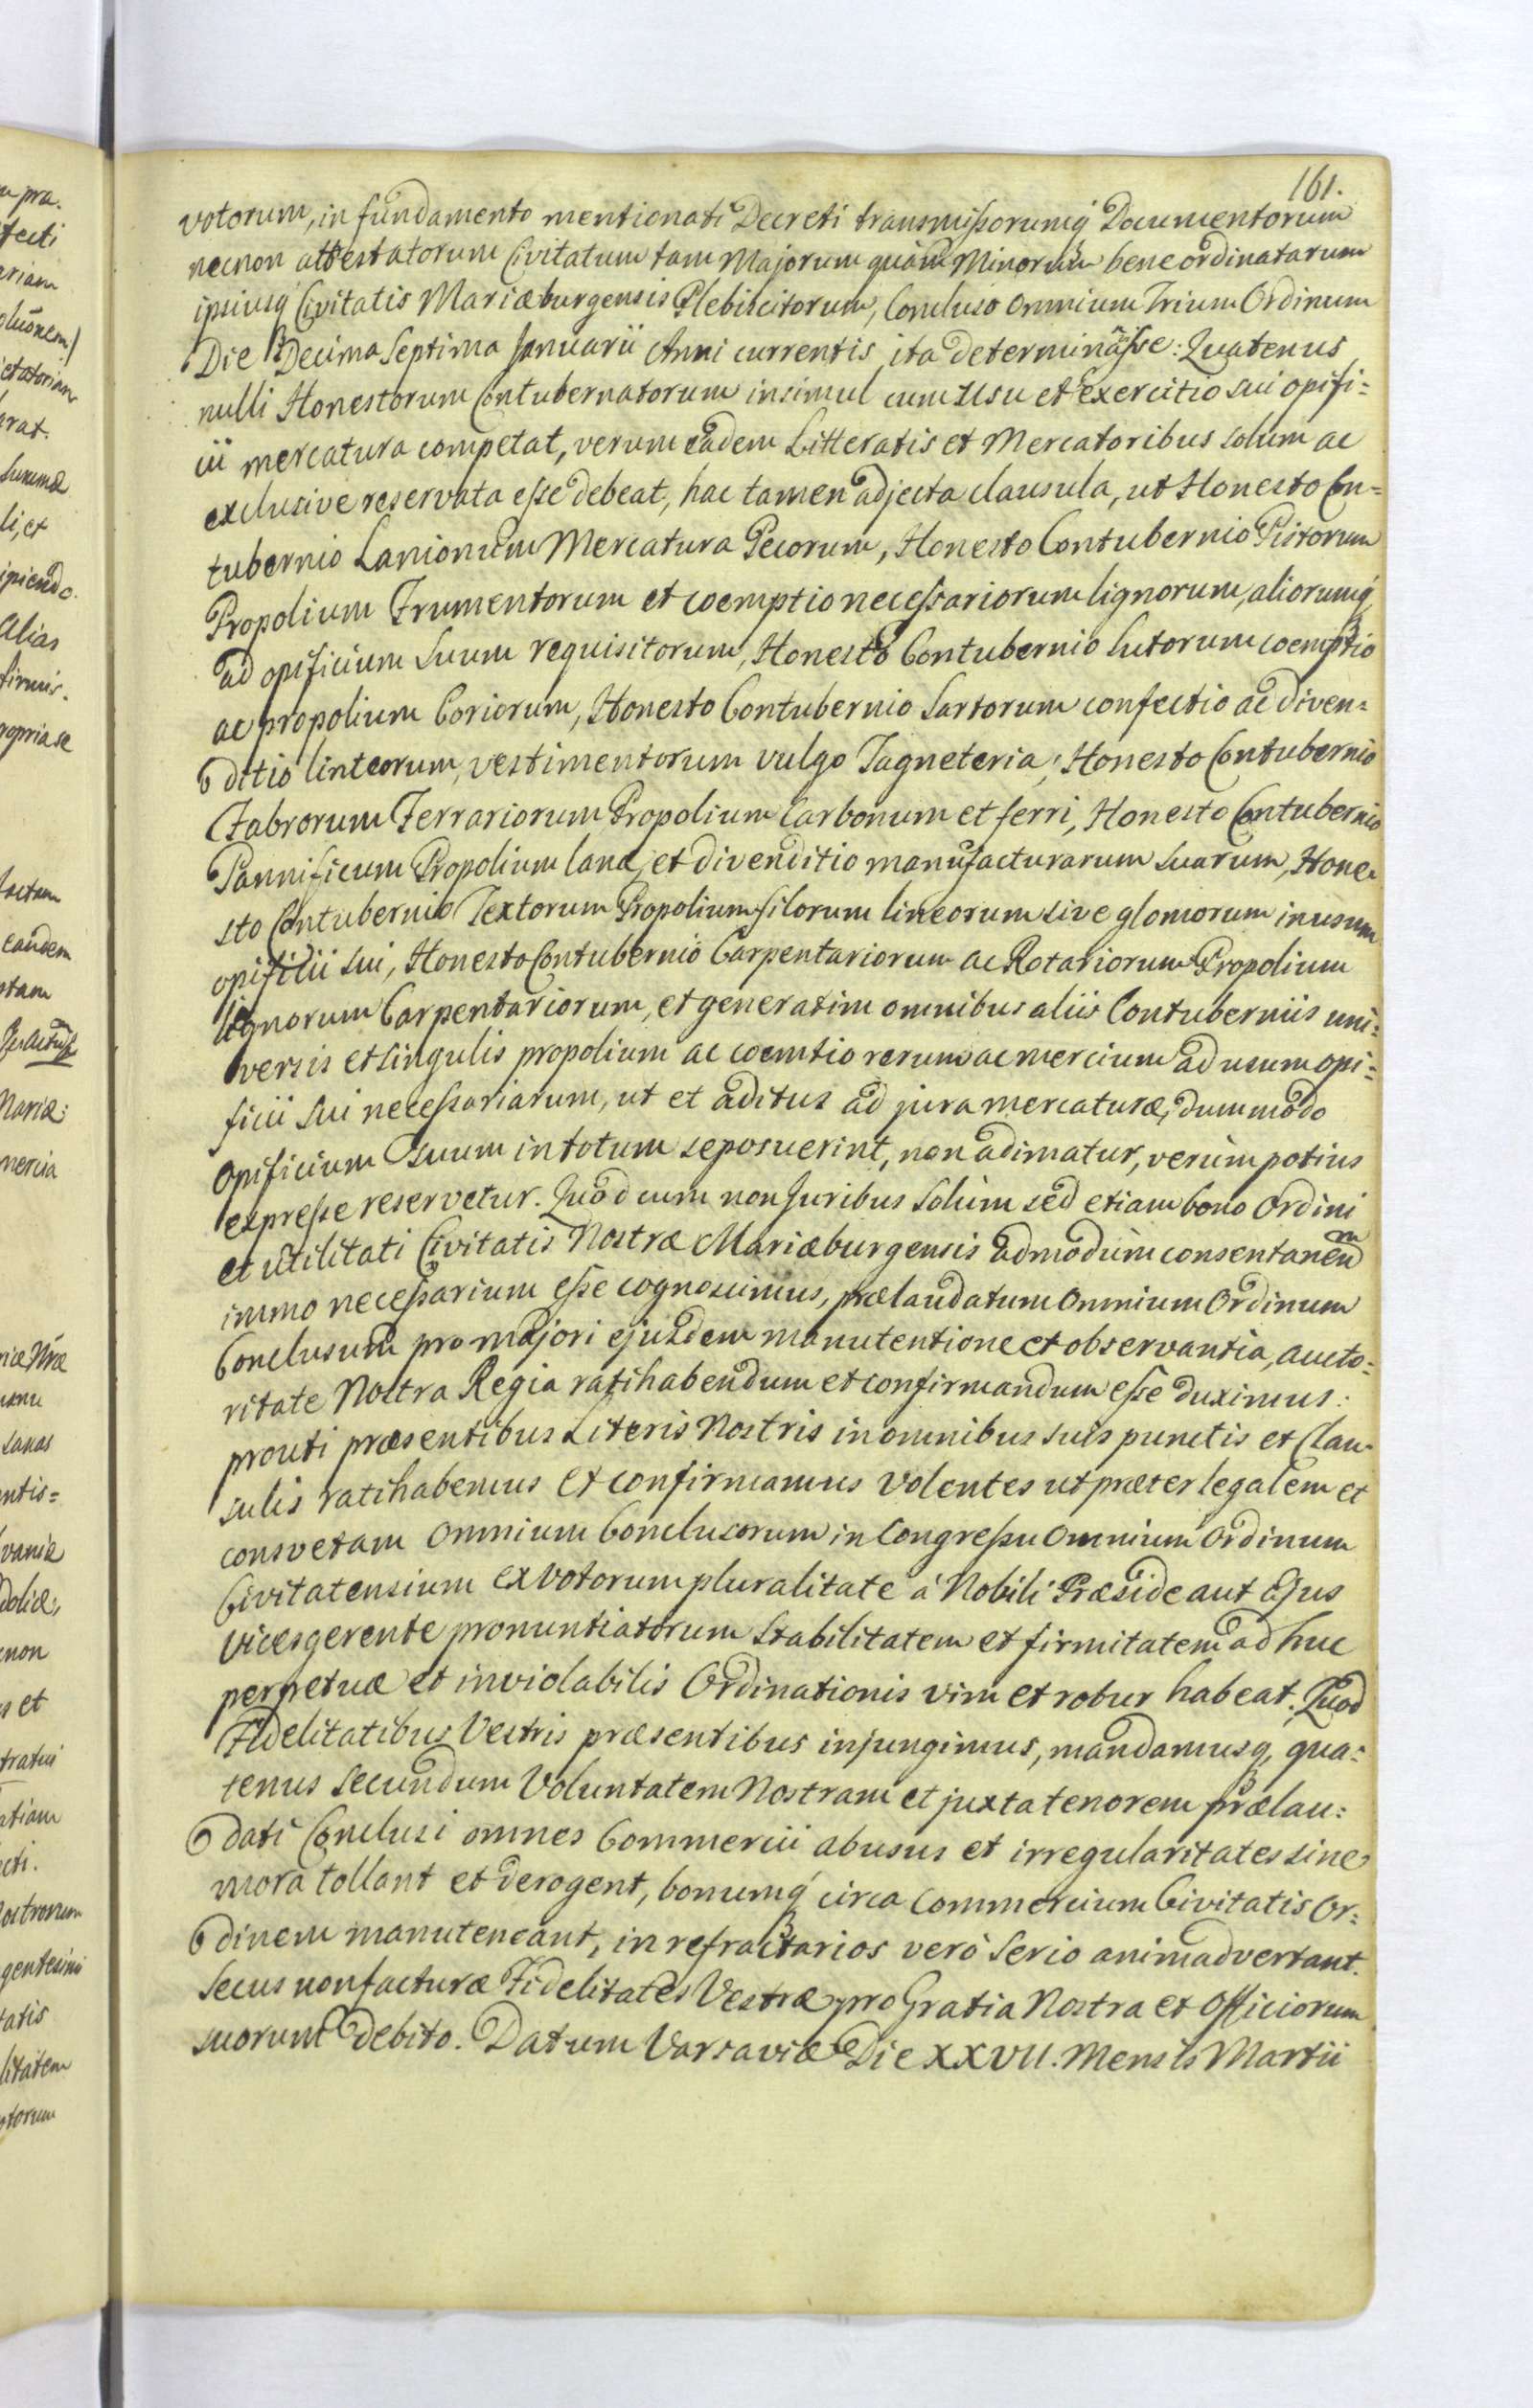 161.
votorum, in fundamento mentionati Decreti transmissorumq́ Documentorum
necnon attestatorum Civitatum tam Majorum quàm Minorum bene ordinatarum
ipsiusq́ Civitatis Mariæburgensis Plebiscitorum, Concluso Omnium Trium Ordinum
Die Decima Septima Januarii Anni currentis ita determinâsse: Quatenus
nulli Honestorum Contubernatorum insimul cum Usu et Exercitio sui opifi=
cii mercatura competat, verum eadem Litteratis et Mercatoribus solum ac
exclusive reservata esse debeat, hac tamen adjecta clausula, ut Honesto Con=
tubernio Lanionum Mercatura Pecorum, Honesto Contubernio Pistorum
Propolium Frumentorum et coemptio necessariorum lignorum, aliorumq́
ad opificium suum requisitorum, Honesto Contubernio Sutorum coemptio
ac propolium Coriorum, Honesto Contubernio Sartorum confectio ac diven=
ditio linteorum, vestimentorum vulgo Tagneteria, Honesto Contubernio
Fabrorum Ferrariorum Propolium Carbonum et ferri, Honesto Contubernio
Pannificum Propolium lanæ, et divenditio manufacturarum suarum, Hone=
sto Contubernio Textorum Propolium filorum lineorum sive glomorum in usum
opificii sui, Honesto Contubernio Carpentariorum ac Rotariorum Propolium
lignorum Carpentariorum, et generatim omnibus aliis Contuberniis uni=
versis et singulis propolium ac coemtio rerum ac mercium ad usum opi=
ficii sui necessariarum, ut et aditus ad jura mercaturæ, dummodo
opificium suum in totum seposuerint, non adimatur, verùm potius
expresse reservetur. Quod cum non Juribus solùm sed etiam bono Ordini
et utilitati Civitatis Nostræ Mariæburgensis admodùm consentaneum
immo necessarium esse cognoscimus, prælaudatum Omnium Ordinum
Conclusum pro majori ejusdem manutentione et observantia, aucto=
ritate Nostra Regia ratihabendum et confirmandum esse duximus:
prouti præsentibus Literis Nostris in omnibus suis punctis et Clau=
sulis ratihabemus et confirmamus Volentes ut præter legalem et
consvetam Omnium Conclusorum in Congressu Omnium Ordinum
Civitatensium ex votorum pluralitate à Nobili Præside aut Ejus
Vicesgerente pronuntiatorum Stabilitatem et firmitatem adhuc
perpetuæ et inviolabilis Ordinationis vim et robur habeat. Quod
Fidelitatibus Vestris præsentibus injungimus, mandamusq, qua=
tenus secundum Voluntatem Nostram et juxta tenorem prælau=
dati Conclusi omnes Commercii abusus et irregularitates sine
mora tollant et derogent, bonumq́ circa Commercium Civitatis Or=
dinem manuteneant, in refractarios verò Serio animadvertant.
Secus non facturæ Fidelitates Vestræ pro Gratia Nostra et Officiorum
suorum Debito. Datum Varsaviæ Die XXVII. Mensis Martii